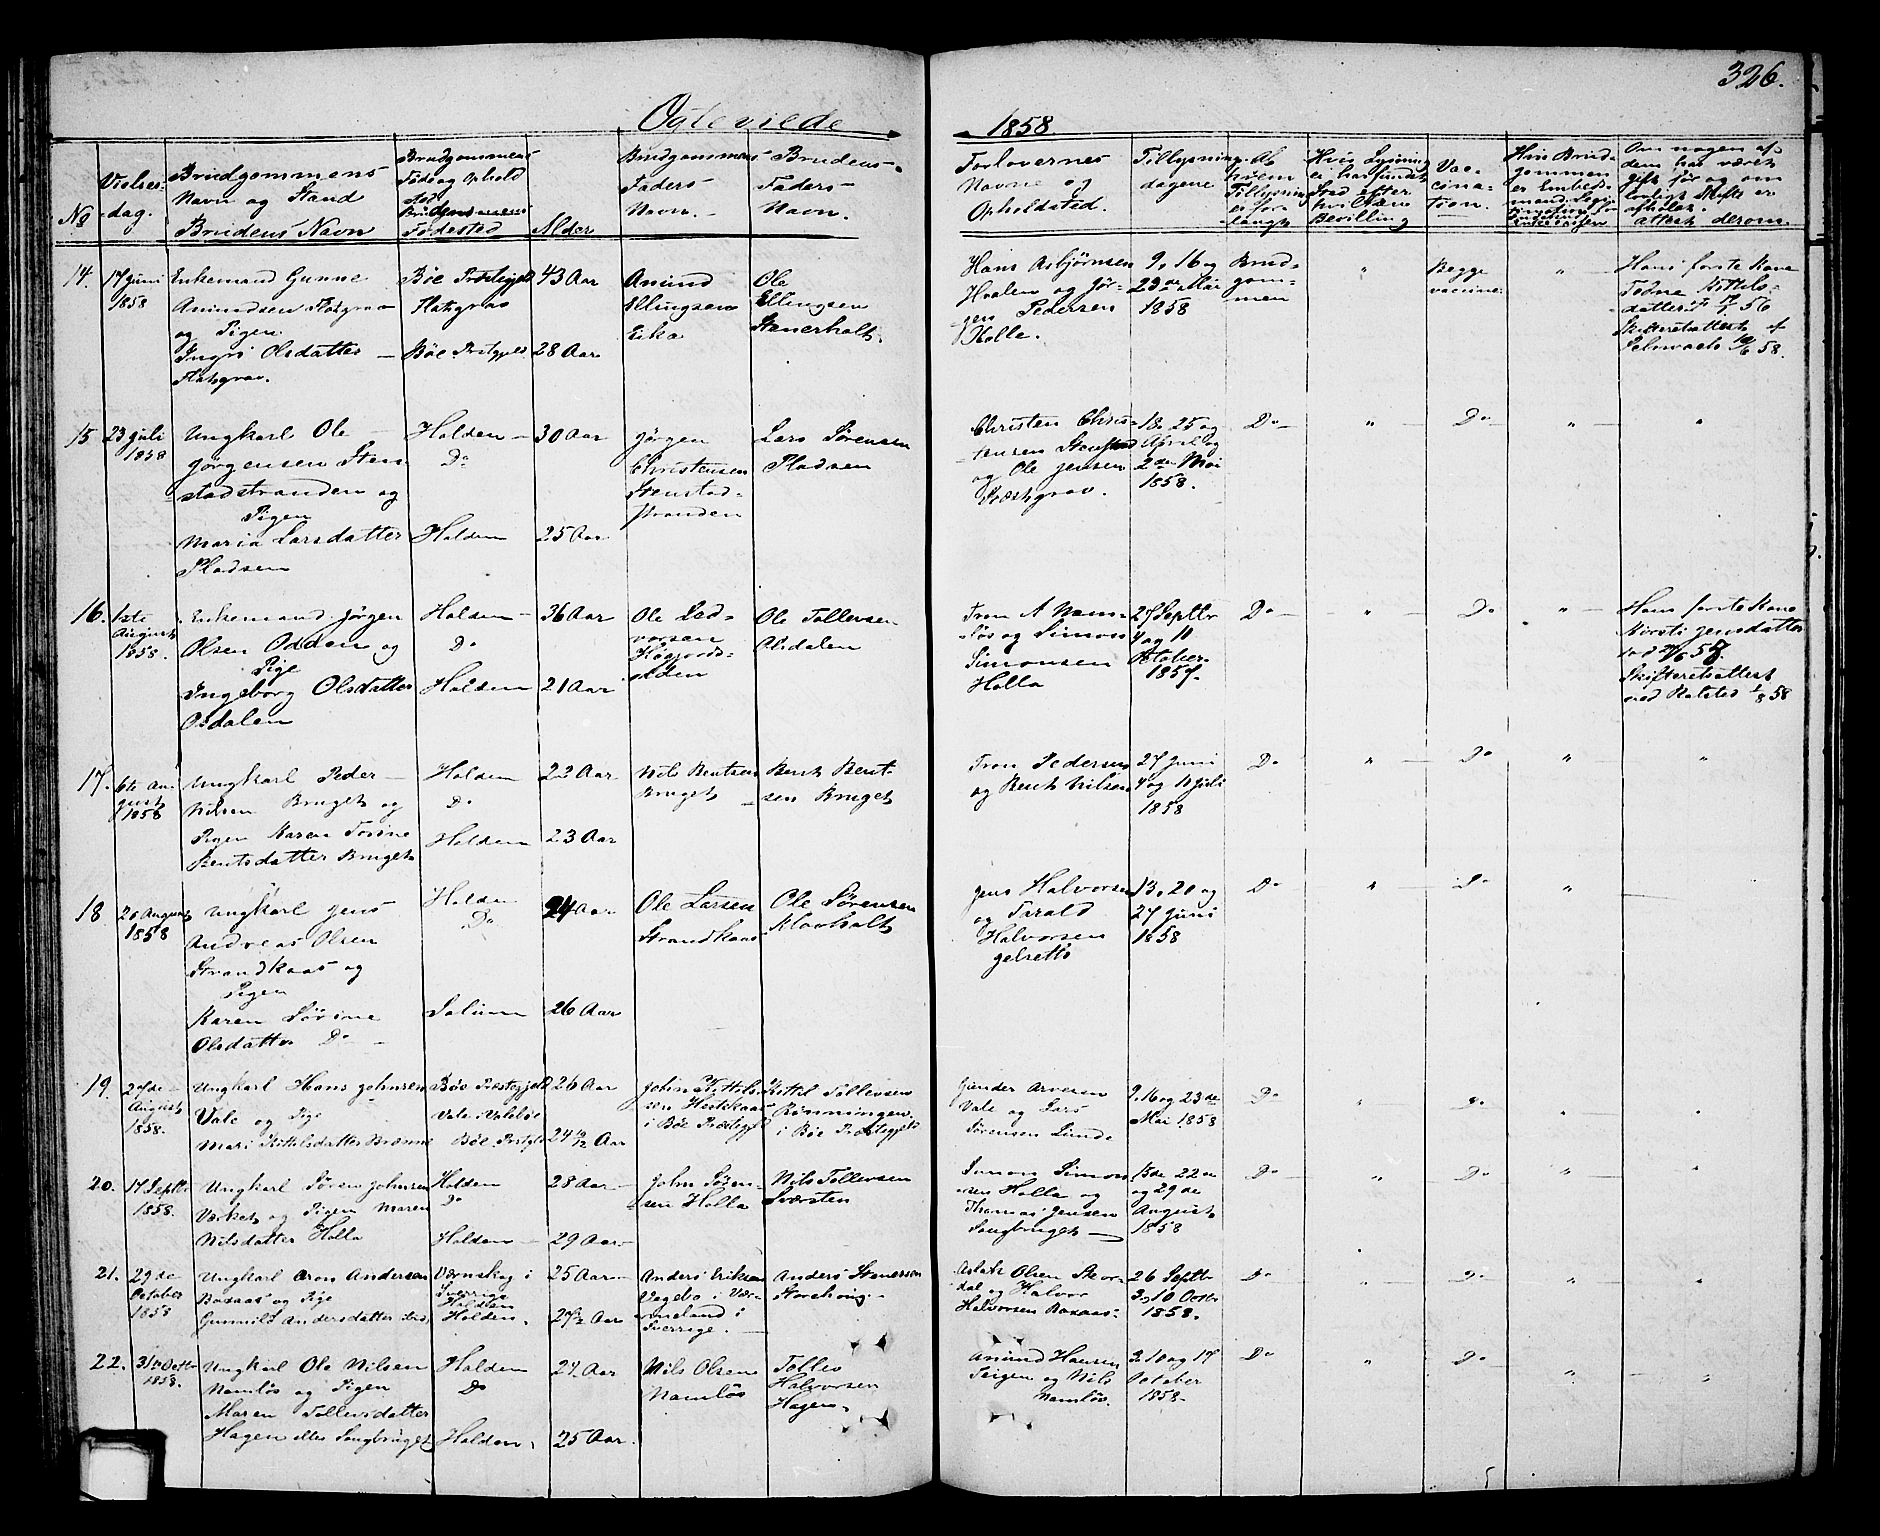 326.
Ogteviede
1858.
No
Vielses-
dag.
Brudgommens
Navn og Stand
Brudens Navn
Brudgommens
Føde og Ophold
sted
Brudens
Fødested
Alder
Brudgommens
Faders
Navn.
Brudens
Faders
Navn.
Forlovernes
Navne og
Opholdsted.
Tillysnings
dagene
Af
hvem
Tillysning
er for-
langt
Hvis Lysning
ei har fundet
Sted efter
hvilken
Bevilling
Vac-
cina-
tion.
Hvis Brud-
gommen
er Embeds-
mand
Om nogen af
dem har været
gift før og om
lovligt Skifte er
afholdt
attest derom.
14.
17 Juni
1858
Enkemand Gunne
Amundsen Flatgrav
og Pigen
Ingri Olsdatter
Flatgrav.
Bøe Præstegjeld
Flatgrav
Bøe Prstgjeld
43 Aar
28 Aar
Amund
Ellingsen
Eika
Ole
Ellingsen
Stenerholt.
Hans Asbjørnsen
Hvalen og Jør-
gen Pedersen
Holla.
9, 16 og
23de Mai
1858
Brud-
gom-
men
"
Begge
vaccine.
"
Hans første Kone
Todne Kittils-
datter
56
Skifteretsattest af
58.
15
23 Juli
1858
Ungkarl Ole
Jørgensen Sten-
stadstranden og
Pigen
Maria Larsdatter
Pladsen
Holden
Do
Holden
30 Aar
25 Aar
Jørgen
Christensen
Stenstad-
stranden
Lars Sørensen
Pladsen
Christen Chris-
tensen Stenstad
og Ole Jensen
Præstgrav.
18, 25 og
April og
2den Mai
1858.
Do
"
Do
"
"
16.
1ste
August
1858.
Enkemand Jørgen
Olsen Odden og
Pige
Ingeborg Olsdatter
Osdalen
Holden
Do
Holden
36 Aar
21 Aar
Ole Hal-
vorsen
Ole Tollevsen
Osdalen
Tron A Nam-
løs og Simon
Simonsen
Holla
27 Septbr
4 og 11
October
1857.
Do
"
Do
"
Hans første Kone
Kirsti Jensdatter
Skifteretsattest
58
17.
6te Au-
gust
1858
Ungkarl Peder
Nilsen Bruget og
Pigen Karen Torine
Bentsdatter Bruget
Holden
Do
Holden
22 Aar
23 Aar
Nils Bentsen
Bruget
Bent Bent-
sen Bruget
Tron Pedersen
og Bent Nilsen
27 Juni
4 og 11 Juli
1858
Do
"
Do
"
"
18
20 August
1858
Ungkarl Jens
Andreas Olsen
Strandkaas og
Pigen
Karen Sørine
Olsdatter Do
Holden
Do
Solum
24 Aar
26 Aar
Ole Larsen
Strandkaas
Ole Sørensen
Klovholt
Jens Halvorsen
og Tarald
Halvorsen
13, 20 og
27 Juni
1858
Do
"
Do
"
19.
27de
August
1858.
Ungkarl Hans Johnsen
Vale og Pige
Mari Kittelsdatter
Bøe Præstegjeld
Vale i Valebøe
Bøe Prstgjeld
26 Aar
24 Aar
John Kittils-
sen Hestekaas
i Bøe Præstegjeld
Kittil Tollevsen
Rønningen
i Bøe Præstegjeld
Gunder Arvesen
Vale og Lars
Sørensen Lunde
9, 16 og 23de
Mai 1858
Do
"
Do
"
"
20.
17 Septbr
1858.
Ungkarl Søren Johnsen
Værket og Pigen Maren
Nilsdatter Holla
Holden
Do
Holden
28 Aar
29 Aar
John Søren-
sen Holla
Nils Tollevsen
Sværsten
Simon Simon-
sen Holla og
Thomas Jensen
Saugbruget
15de 22 og
og 29de
August
1858
Do
"
Do
"
"
21.
29de
October
1858
Ungkarl Aron Andersen
Baxaas og Pige
Gunnild Andersdatter ibid
Værnskog i
Sverrige
Holden
Holden.
25 Aar
27½ Aar
Anders Eriksen
Vegebo i Vær-
meland i
Sverrige.
Anders Stenersen
Storehaug.
Aslak Olsen Skor-
dal og Halvor
Halvorsen Baxaas
26 Septbr
3, 10 Octbr
1858.
Do
"
Do
"
"
22.
31te Octbr
1858.
Ungkarl Ole Nilsen
Namløs og Pigen
Maren Tollevsdatter
Hagen eller Saugbruget
Holden
Do
Holden
27 Aar
25 Aar
Nils Olsen
Namløs
Tollev
Halvorsen
Hagen.
Amund Hansen
Teigen og Nils
Namløs.
3, 10 og 17
October
1858.
Do
"
Do
"
"